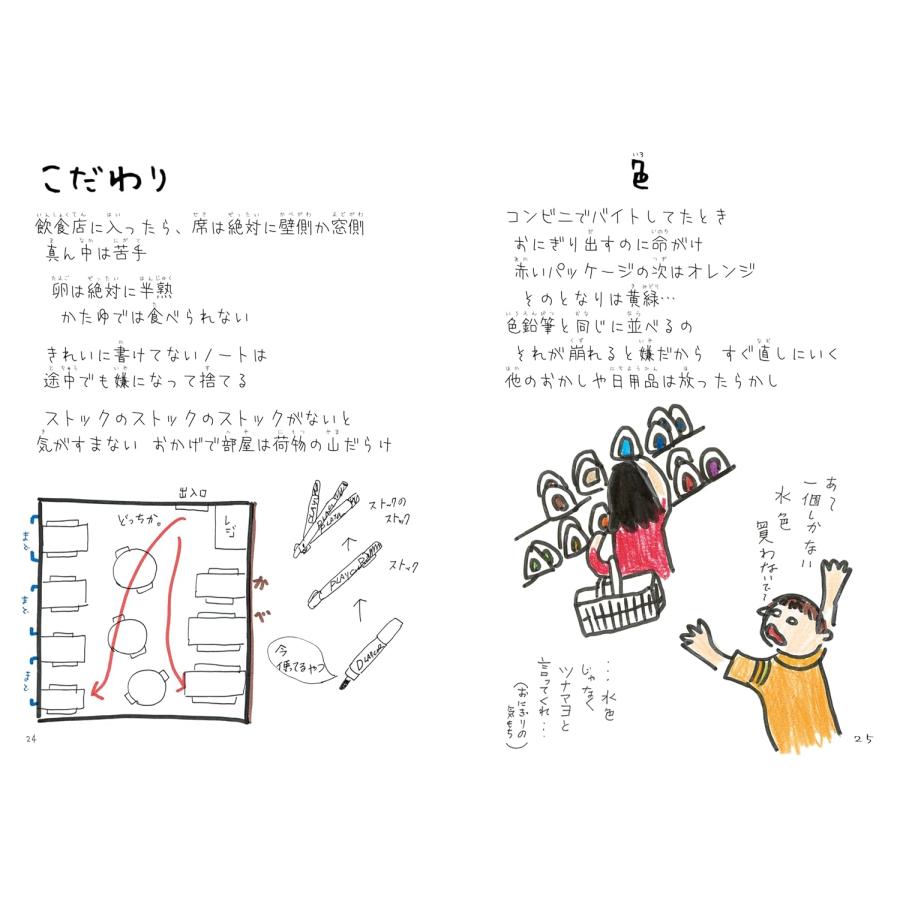 こだわり
飲食店に入ったら、席は絶対に壁側か窓側
真ん中は苦手
卵は絶対に半熟
かたゆでは食べられない
きれいに書けてないノートは
途中でも嫌になって捨てる
ストックのストックのストックがないと
気がすまない おかげで部屋は荷物の山だらけ
出入口
どっちか。
レジ
まど
まど
まど
かべ
ストックの
ストック
ストック
今
使ってるやつ
24
色
コンビニでバイトしてたとき
おにぎり出すのに命がけ
赤いパッケージの次はオレンジ
そのとなりは黄緑…
色鉛筆と同じに並べるの
それが崩れると嫌だから すぐ直しにいく
他のおかしや日用品は放ったらかし
あと
一個しかない
水色
買わないで〜
…水色
じゃなく
ツナマヨと
言ってくれ…
(おにぎりの
気もち)
25